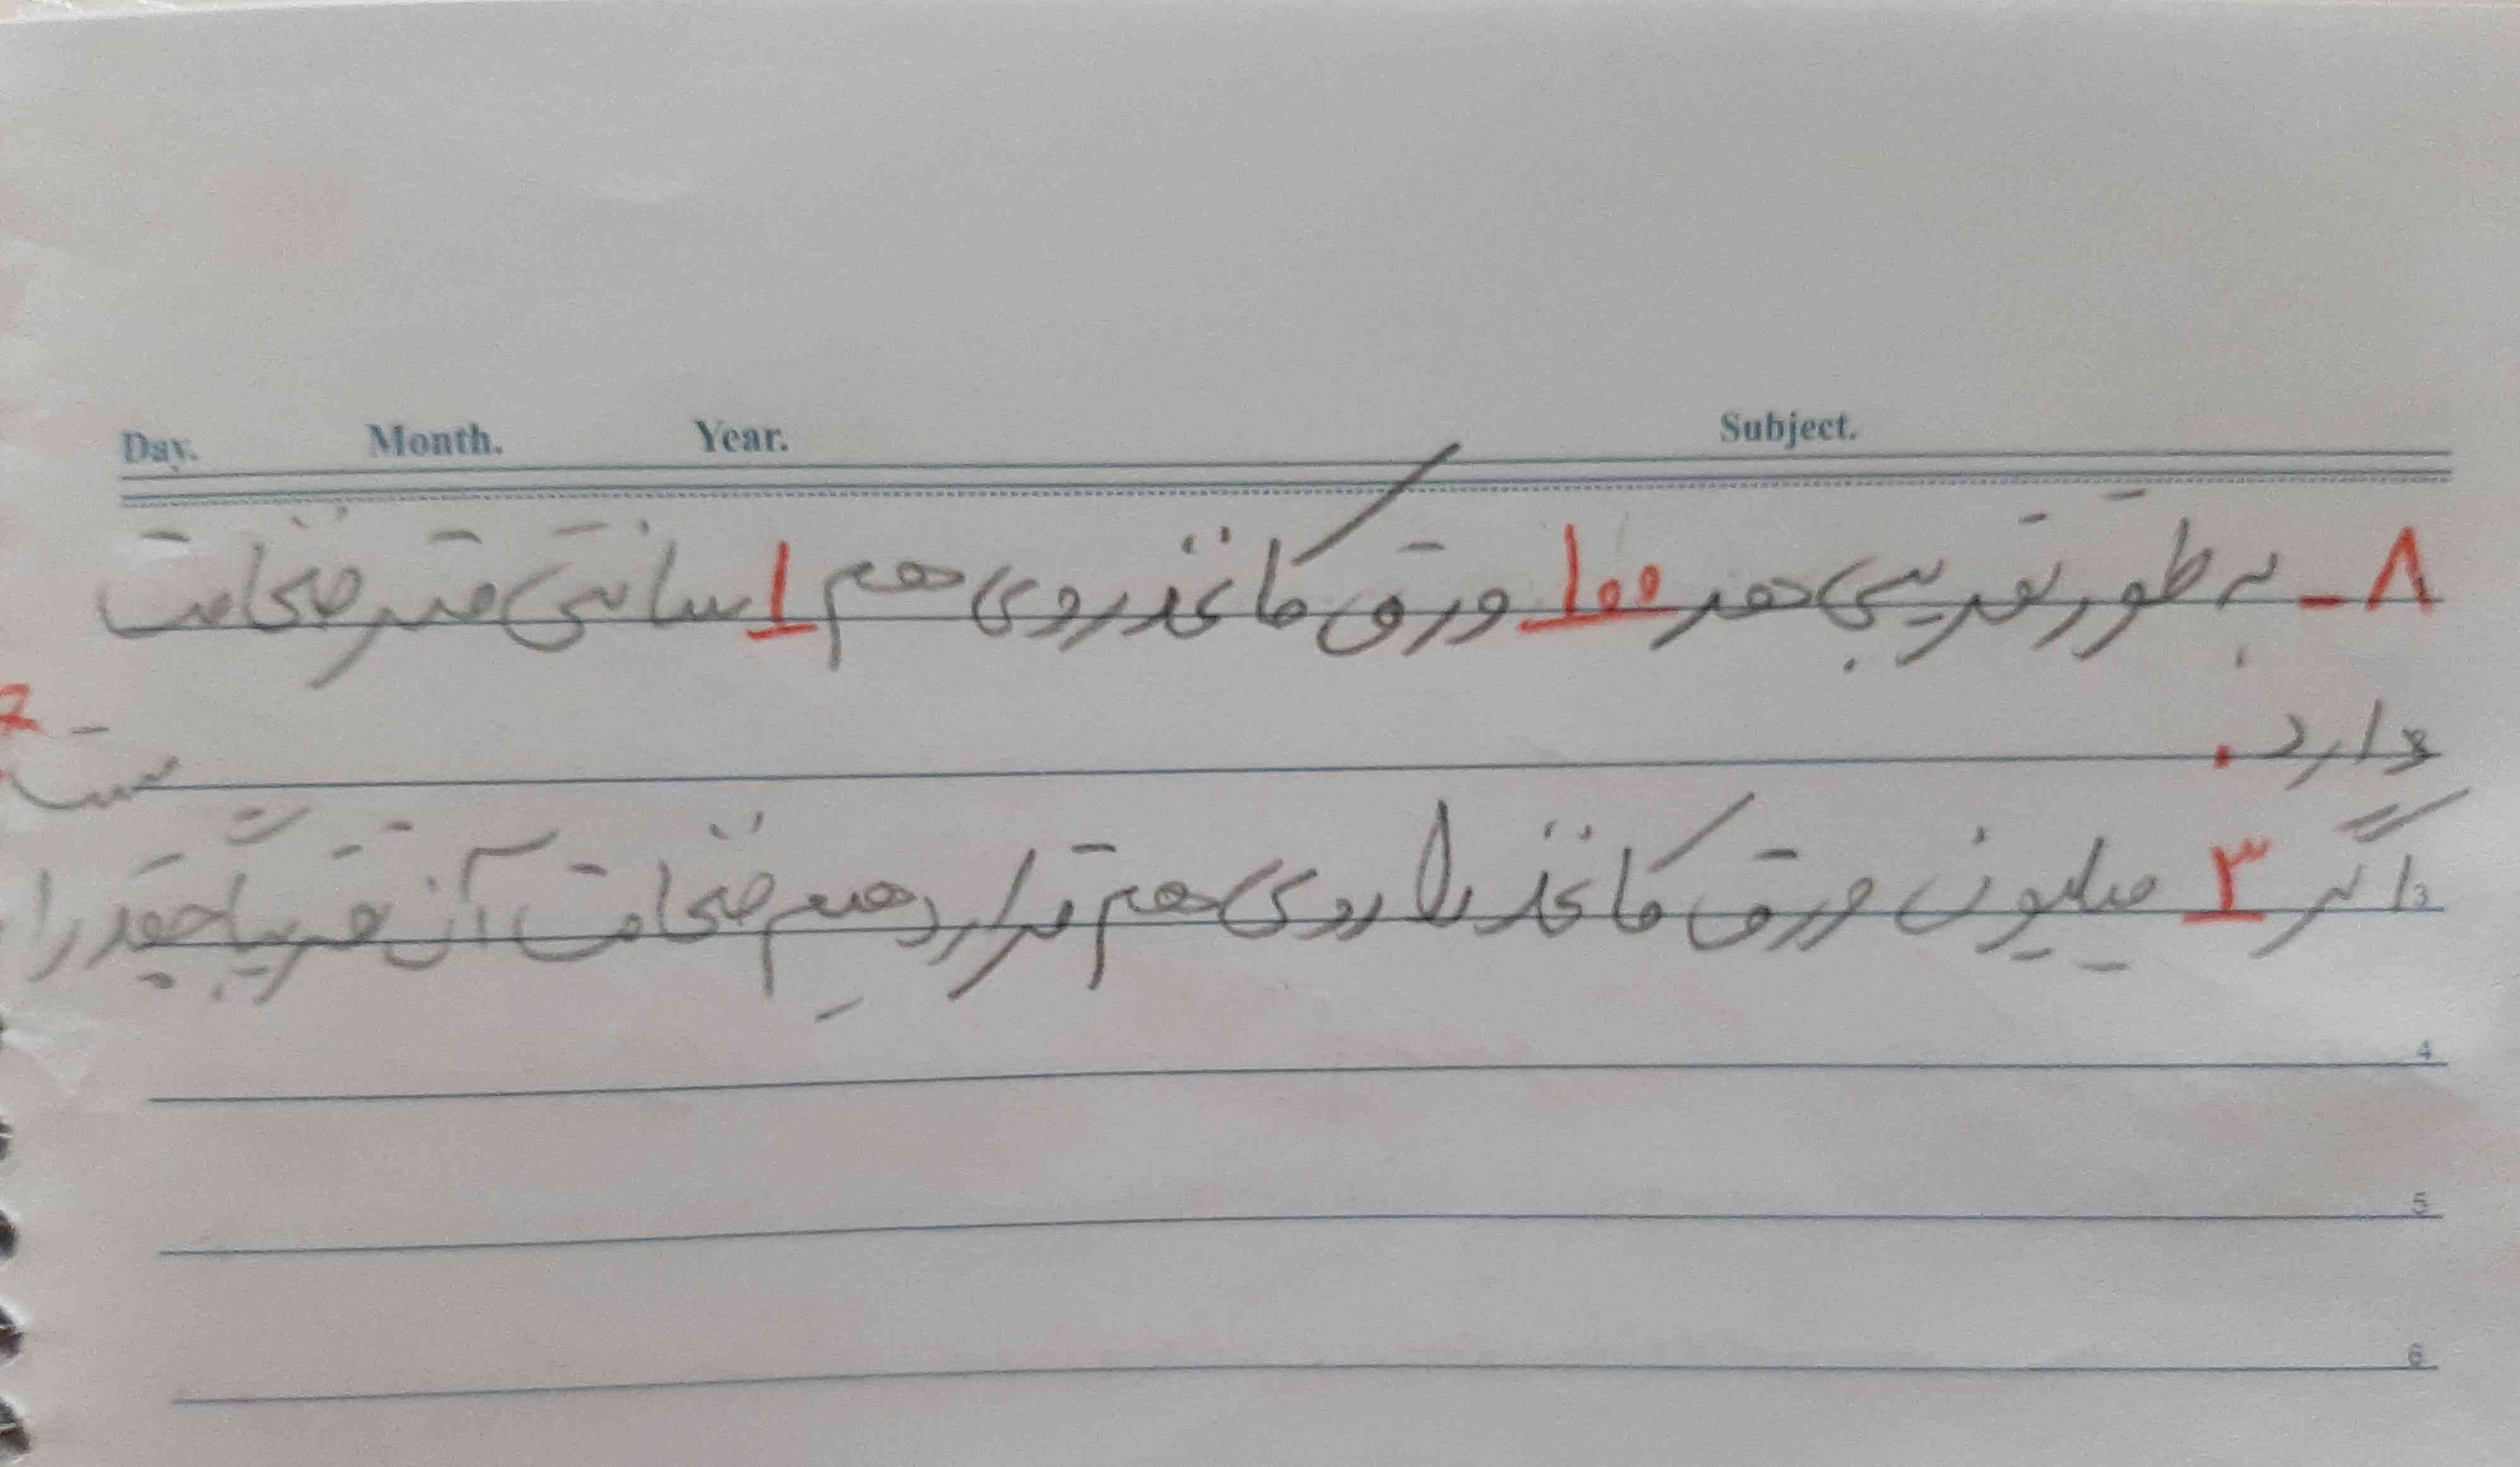 Day. Month. Year. Subject.
۸- به طور تقریبی هر ۱۰۰ ورق کاغذ روی هم ۱ سانتی متر ضخامت
دارد.
اگر ۳ میلیون ورق کاغذ را روی هم قرار دهیم ضخامت آن تقریباً چقدر
4
5
6